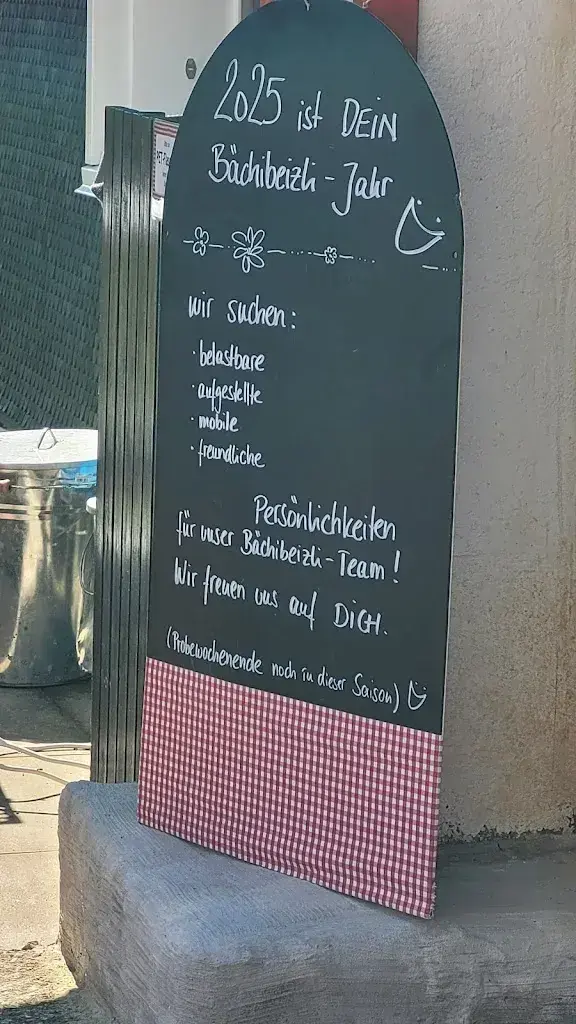 2025 ist DEIN
Bächibeizli-Jahr
wir suchen:
· belastbare
· aufgestellte
· mobile
· freundliche
Persönlichkeiten
für unser Bächibeizli-Team!
Wir freuen uns auf DICH.
(Probewochenende noch in dieser Saison)